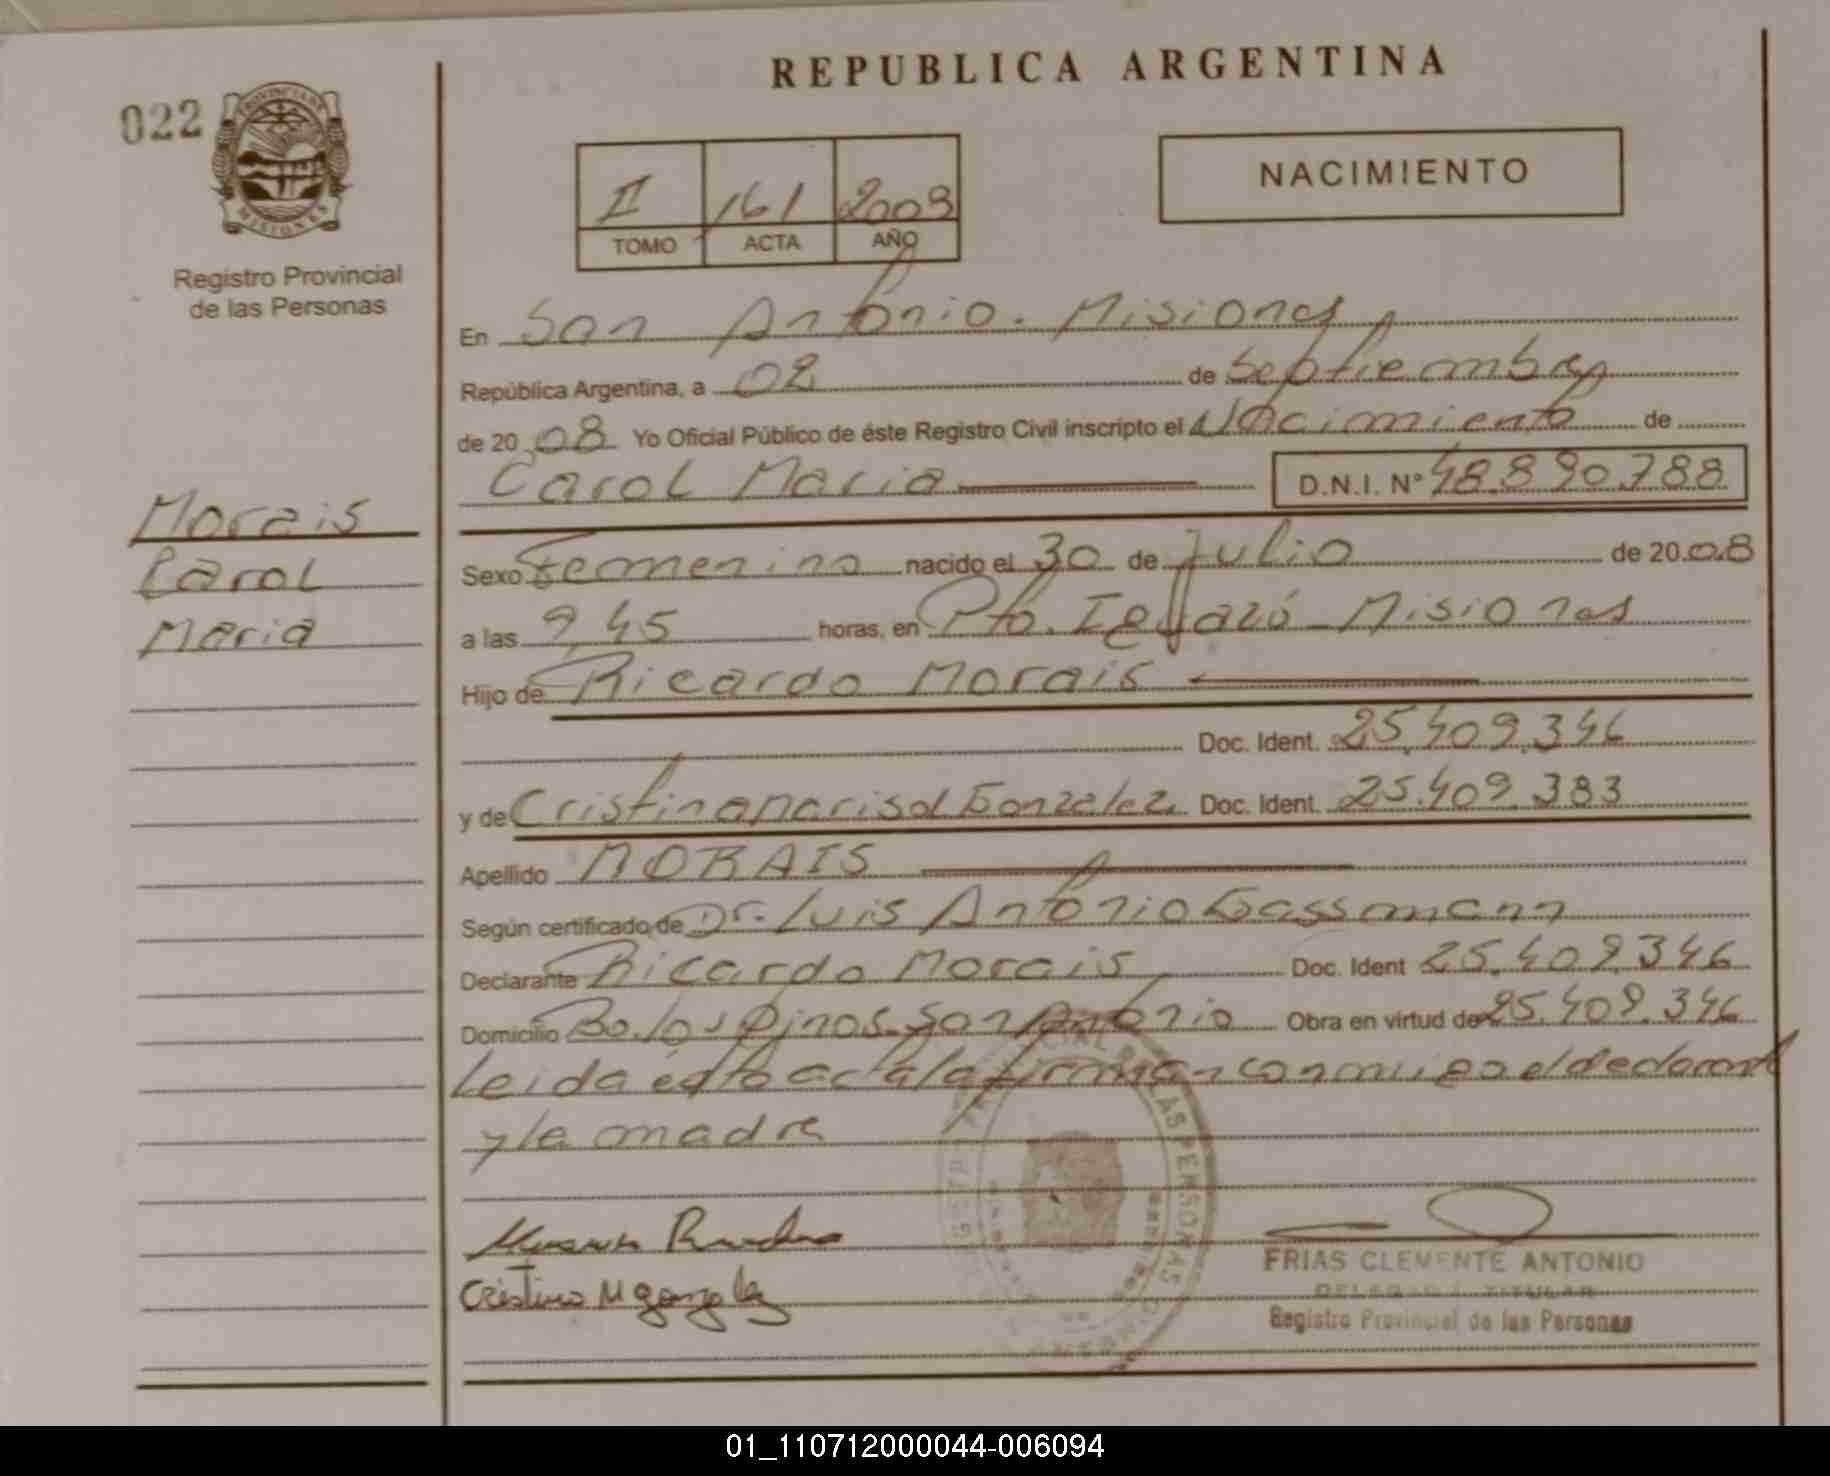 REPUBLICA ARGENTINA
022
PROVINCIA DE
MISIONES
Registro Provincial
de las Personas
II 161 2008
TOMO ACTA AÑO
NACIMIENTO
En San Antonio. Misiones
República Argentina, a 02 de Septiembre
de 20 08 Yo Oficial Público de éste Registro Civil inscripto el Nacimiento de
Carol Maria D.N.I. N° 48.890.788
Morais
Carol
Maria
Sexo Femenino nacido el 30 de Julio de 20 08
a las 9,45 horas, en Pto. Iguazú - Misiones
Hijo de Ricardo Morais
Doc. Ident. 25.409.346
y de Cristina Marisol Gonzalez Doc. Ident. 25.409.383
Apellido MORAIS
Según certificado de Dr. Luis Antonio Gassmann
Declarante Ricardo Morais Doc. Ident 25.409.346
Domicilio Bo. los Pinos. San Antonio Obra en virtud de 25.409.346
Leida esta acta la firman conmigo el declarante
y la madre
Cristina M gonzalez
FRIAS CLEMENTE ANTONIO
DELEGADO TITULAR
Registro Provincial de las Personas
01_110712000044-006094